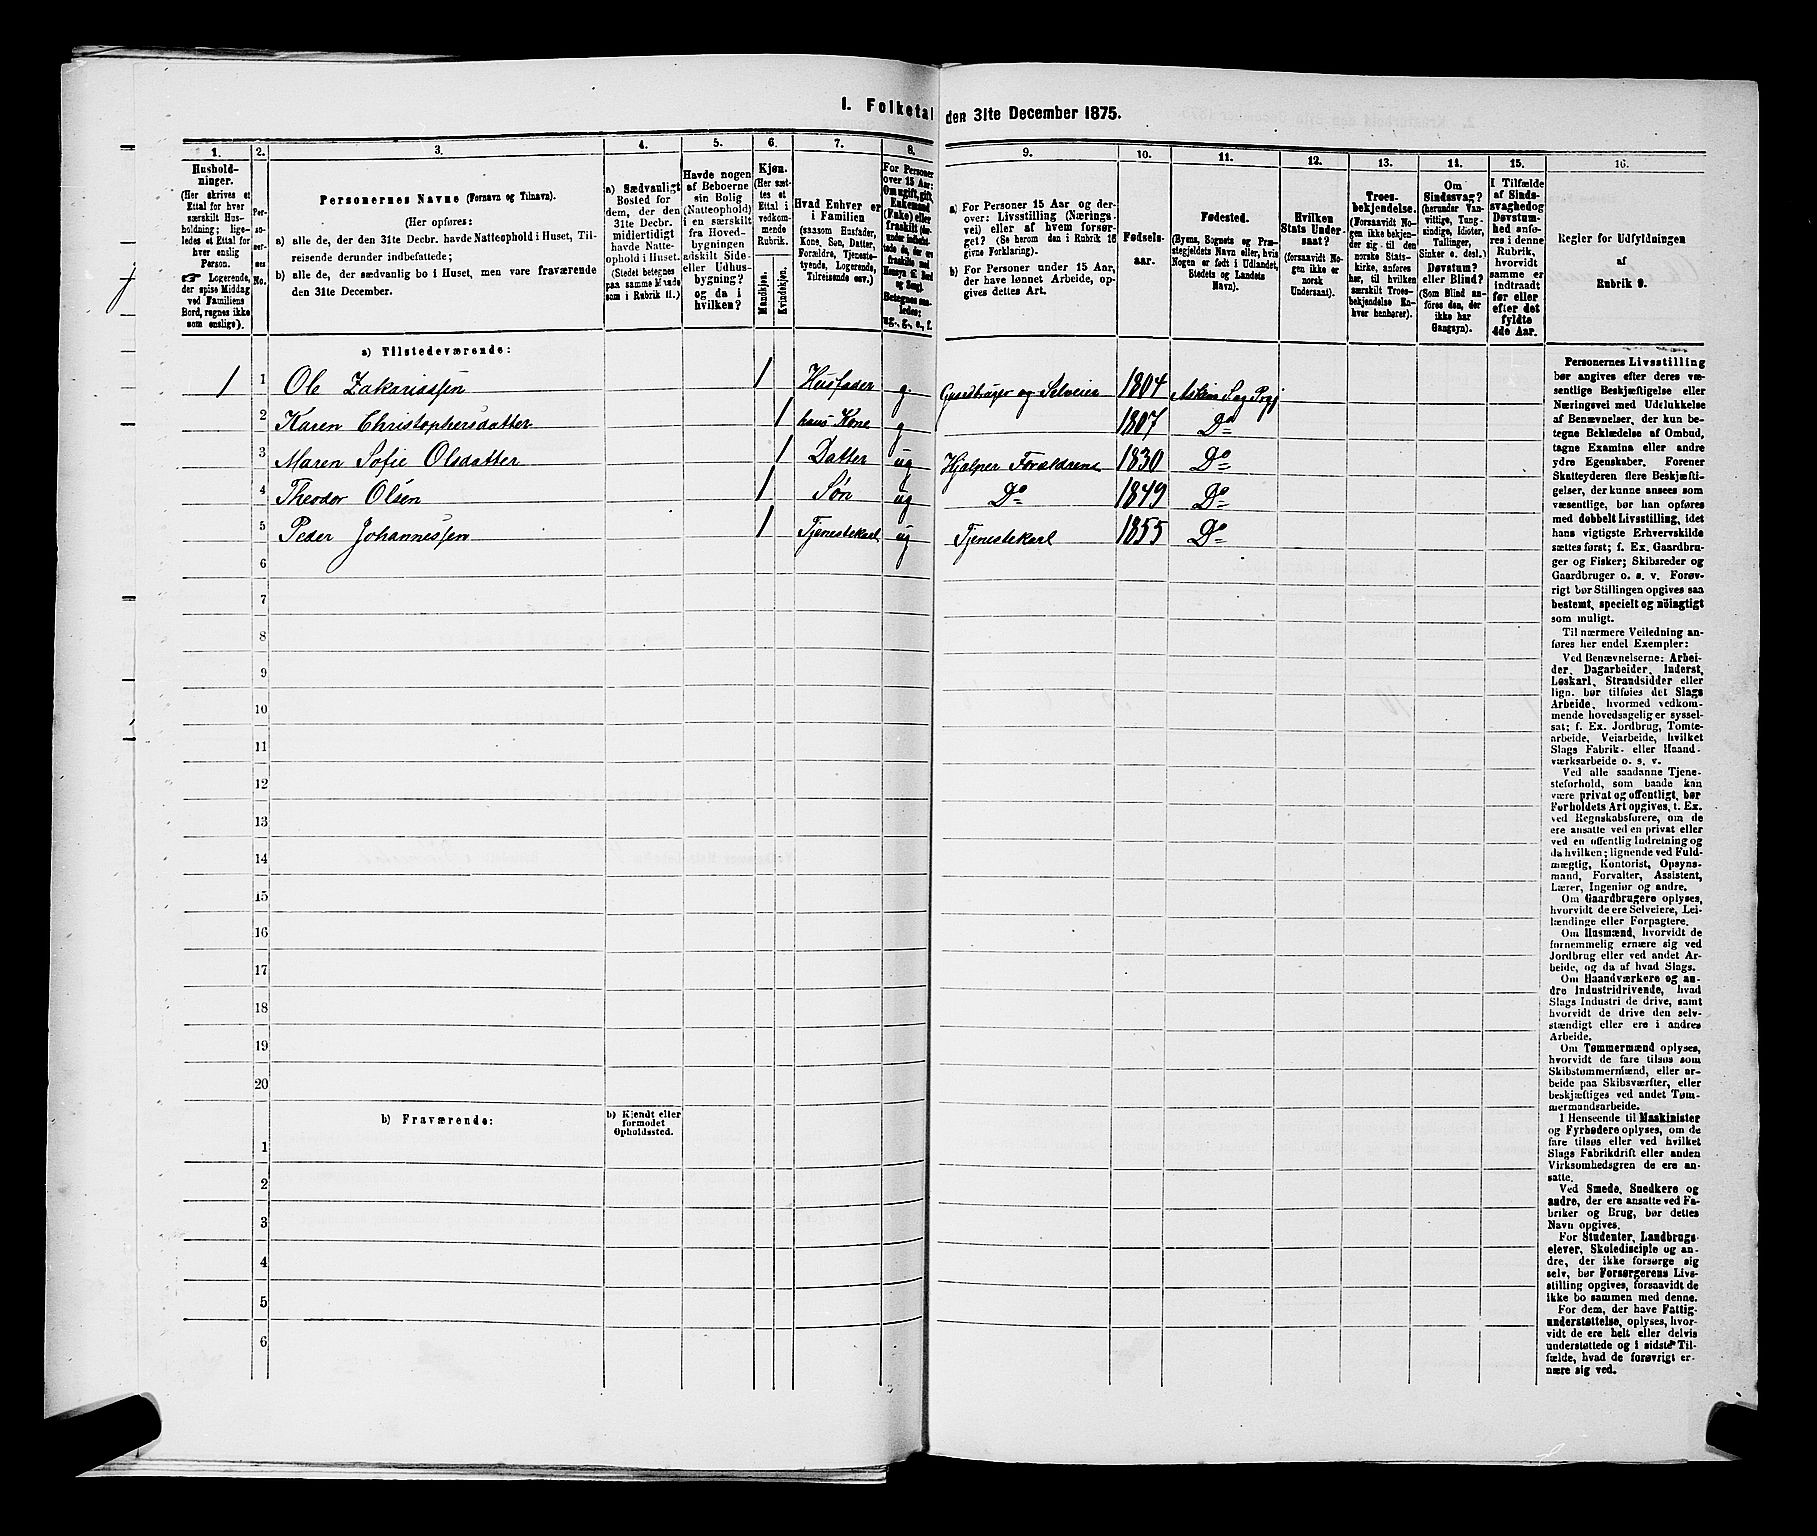 I. Folketal den 31te December 1875.
1. 2. 3. 4. 5. 6. 7. 8. 9. 10. 11. 12. 13. 14. 15. 16.
Hushold-
ninger.
(Her skrives et
Ettal for hver
særskilt Hus-
holdning; lige-
ledes et Ettal for
hver enslig
Person.
☞ Logerende,
der spise Middag
ved Familiens
Bord, regnes ikke
som enslige).
Per-
so-
ner-
nes
No.
Personernes Navne (Fornavn og Tilnavn).
(Her opføres:
a) alle de, der den 31te Decbr. havde Natteophold i Huset, Til-
reisende derunder indbefattede;
b) alle de, der sædvanlig bo i Huset, men vare fraværende
den 31te December.
a) Sædvanligt
Bosted for
dem, der den
31te Decbr.
midlertidigt
havde Natte-
ophold i Huset.
(Stedet betegnes
paa samme Maade
som i Rubrik 11.)
Havde nogen
af Beboerne
sin Bolig
(Natteophold)
en særskilt
fra Hoved-
bygningen
adskilt Side-
eller Udhus-
bygning?
og da i
hvilken?
Kjøn.
(Her sæt-
tes et
Ettal i
vedkom-
mende
Rubrik.
Mandkjøn.
Kvindekjøn.
Hvad Enhver er
i Familien
(saasom Husfader,
Kone, Søn, Datter,
Forældre, Tjeneste-
tyende, Logerende,
Tilreisende osv.)
For Personer
over 15 Aar:
Om ugift, gift,
Enkemand
(Enke) eller
fraskilt
Betegnes saa-
ledes:
ug., g., e., f.
a) For Personer 15 Aar og der-
over: Livsstilling (Nærings-
vei) eller af hvem forsør-
get? (Se herom den i Rubrik 16
givne Forklaring).
b) For Personer under 15 Aar,
der have lønnet Arbeide, op-
gives dettes Art.
Fødsels-
aar.
Fødested.
(Byens, Sognets og Præ-
stegjeldets Navn eller, hvis
Nogen er født i Udlandet,
Stedets og Landets
Navn).
Hvilken
Stats Under-
saat?
(forsaavidt No-
gen ikke er
norsk
Undersaat).
Troes-
bekjendelse.
(Forsaavidt No-
gen ikke bekjen-
der sig til den
norske Stats-
kirke, anføres
her, til hvilken
særskilt Troes-
bekjendelse En-
hver henhører).
Om
Sindssvag?
(herunder Van-
vittige, Tung-
sindige, Idioter,
Tullinger,
Sinker o. desl.)
Døvstum?
eller Blind?
(Som Blind an-
føres den, der
ikke har
Gangsyn).
I Tilfælde
af Sinds-
svaghed og
Døvstum-
hed anfø-
res i denne
Rubrik,
hvorvidt
samme er
indtraadt
før eller
efter det
fyldte
4de Aar.
Regler for Udfyldningen
af
Rubrik 9.
a) Tilstedeværende:
1 1 Ole Zakariassen 1 Husfader g Gaardbruger og Selveier 1804
2 Karen Christophersdatter 1 hans Kone g 1807 Do
3 Maren Sofie Olsdatter 1 Datter ug Hjælper Forældrene 1830 Do
4 Theodor Olsen 1 Søn ug Do 1849 Do
5 Peder Johannessen 1 Tjenestekarl ug Tjenestekarl 1855 Do
6
7
8
9
10
11
12
13
14
15
16
17
18
19
20
b) Fraværende:
b) Kjendt eller
formodet
Opholdssted.
1
2
3
4
5
6
Personernes Livsstilling
bør angives efter deres væ-
sentlige Beskjæftigelse eller
Næringsvei med Udelukkelse
af Benævnelser, der kun be-
tegne Beklædelse af Ombud,
tagne Examina eller andre
ydre Egenskaber. Forener
Skatteyderen flere Beskjæfti-
gelser, der kunne ansees som
væsentlige, bør han opføres
med dobbelt Livsstilling, idet
hans vigtigste Erhvervskilde
sættes først; f. Ex. Gaardbru-
ger og Fisker; Skibsreder og
Gaardbruger o. s. v. Forøv-
rigt bør Stillingen opgives saa
bestemt, specielt og nöiagtigt
som muligt.
Til nærmere Veiledning an-
føres her endel Exempler:
Ved Benævnelserne: Arbei-
der, Dagarbeider, Inderst,
Løskarl, Strandsidder eller
lign. bør tilføies det Slags
Arbeide, hvormed vedkom-
mende hovedsagelig er syssel-
sat; f. Ex. Jordbrug, Tomte-
arbeide, Veiarbeide, hvilket
Slags Fabrik- eller Haand-
værksarbeide o. s. v.
Ved alle saadanne Tjene-
steforhold, som baade kan
være privat og offentligt, bør
Forholdets Art opgives, t. Ex.
ved Regnskabsførere, om de
ere ansatte ved en privat eller
ved en offentlig Indretning og
da hvilken; lignende ved Fuld-
mægtig, Kontorist, Opsyns-
mand, Forvalter, Assistent,
Lærer, Ingeniør og andre.
Om Gaardbrugere oplyses,
hvorvidt de ere Selveiere, Lei-
lændinge eller Forpagtere.
Om Husmænd, hvorvidt de
fornemmelig ernære sig ved
Jordbrug eller ved andet Ar-
beide, og da af hvad Slags.
Om Haandværkere og an-
dre Industridrivende, hvad
Slags Industri de drive, samt
hvorvidt de drive den selv-
stændigt eller ere i andres
Arbeide.
Om Tømmermænd oplyses,
hvorvidt de fare tilsøs som
Skibstømmermænd, eller ar-
beide paa Skibsværfter, eller
beskjæftiges ved andet Tøm-
mermandsarbeide.
I Henseende til Maskinister
og Fyrbødere oplyses, om de
fare tilsøs eller ved hvilket
Slags Fabrikdrift eller anden
Virksomhedsgren de ere an-
satte.
Ved Smede, Snedkere og
andre, der ere ansatte ved Fa-
briker og Brug, bør dettes
Navn opgives.
For Studenter, Landbrugs-
elever, Skoledisciple og an-
dre, der ikke forsørge sig
selv, bør Forsørgerens Livs-
stilling opgives, forsaavidt de
ikke bo sammen med denne.
For dem, der have Fattig-
understøttelse, oplyses, hvor-
vidt de ere helt eller delvis
understøttede og i sidste Til-
fælde, hvad de forøvrigt er-
nære sig ved.